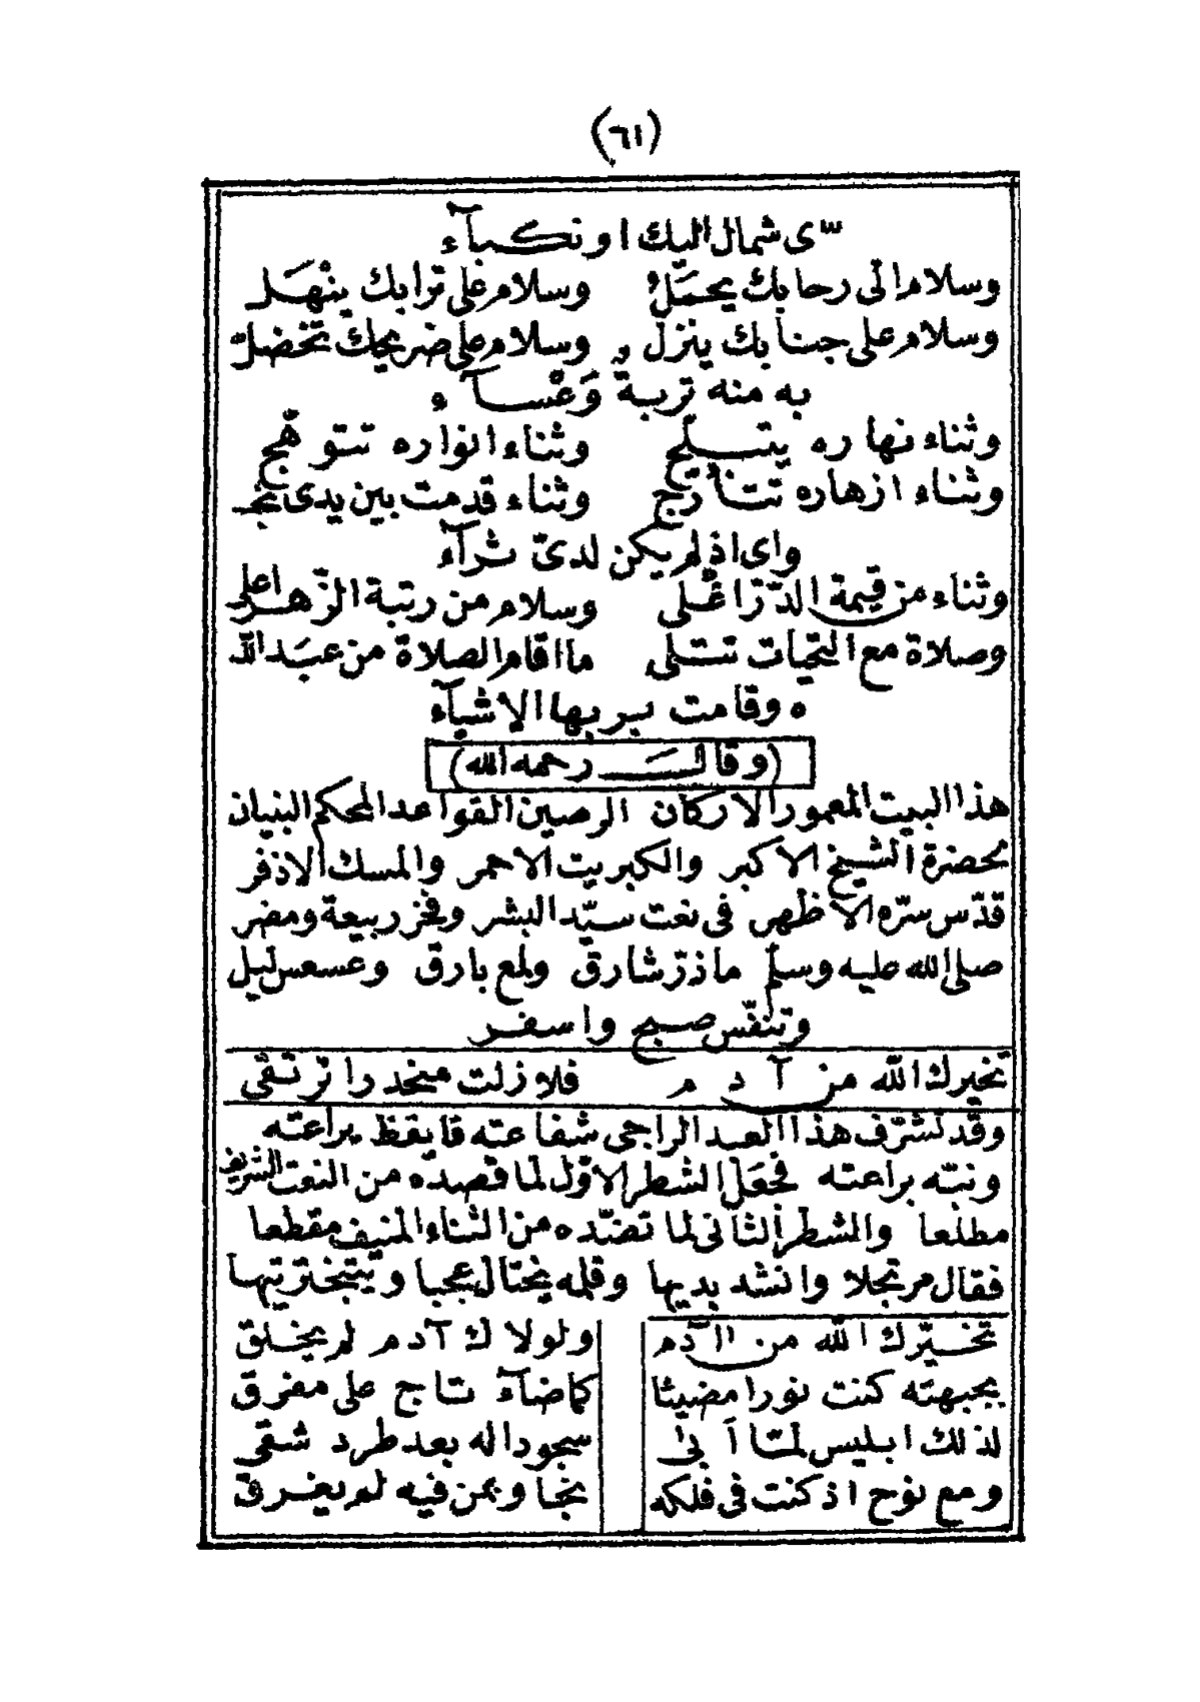 (٦١)
سّى شمال اليك او نكباۤء
وسلام الى رحابك يحمّلُ وسلام على ترابك ينهَل
وسلام على جنابك ينزل وسلام على ضريحك تخضلّ
به منه تربةٌ وَعْساۤء
وثناء نهاره يتبلّج وثناء انواره تتوهّج
وثناء ازهاره تتأرج وثناء قدمت بين يدى نجـ
واى اذ لم يكن لدىّ ثراۤء
وثناء من قيمة الدّرّ اغلى وسلام من رتبة الزّهر اعلى
وصلاة مع التحيات تتلى ما اقام الصلاة من عبَد اللّٰه
ه وقامت بربها الاشياۤء
(وقالـَـ رحمه الله)
هذا البيت المعمور الاركان الرصين القواعد المحكم البنيان
لحضرة الشيخ الاكبر والكبريت الاحمر والمسك الاذفر
قدّس سرّه الاظهر فى نعت سيّد البشر وفخر ربيعة ومضر
صلى الله عليه وسلم ما ذرّ شارق ولمع بارق وعسعس ليل
وتنفّس صبح واسفر
تخيرك اللّٰه من آدم فلا زلت منحدرا ترتقى
وقد تشرّف هذا العبد الراجى شفاعته فايقظ يراعته
ونبّه براعته فجعل الشطر الاوّل لما قصده من النعت الشريف
مطلعا والشطر الثانى لما تضّده من الثناء المنيف مقطعا
فقال مرتجلا وانشد بديها وقلمه يختال عجبا ويتبختر تيها
تخيّرك اللّٰه من اۤدم ولولاك آدم لم يخلق
بجبهته كنت نورا مضيئا كما ضاۤء تاج على مفرق
لذلك ابليس لمّا اَبىٰ سجودا له بعد طرد شقى
ومع نوح اذ كنت فى فلكه نجا وبمن فيه لم يغرق